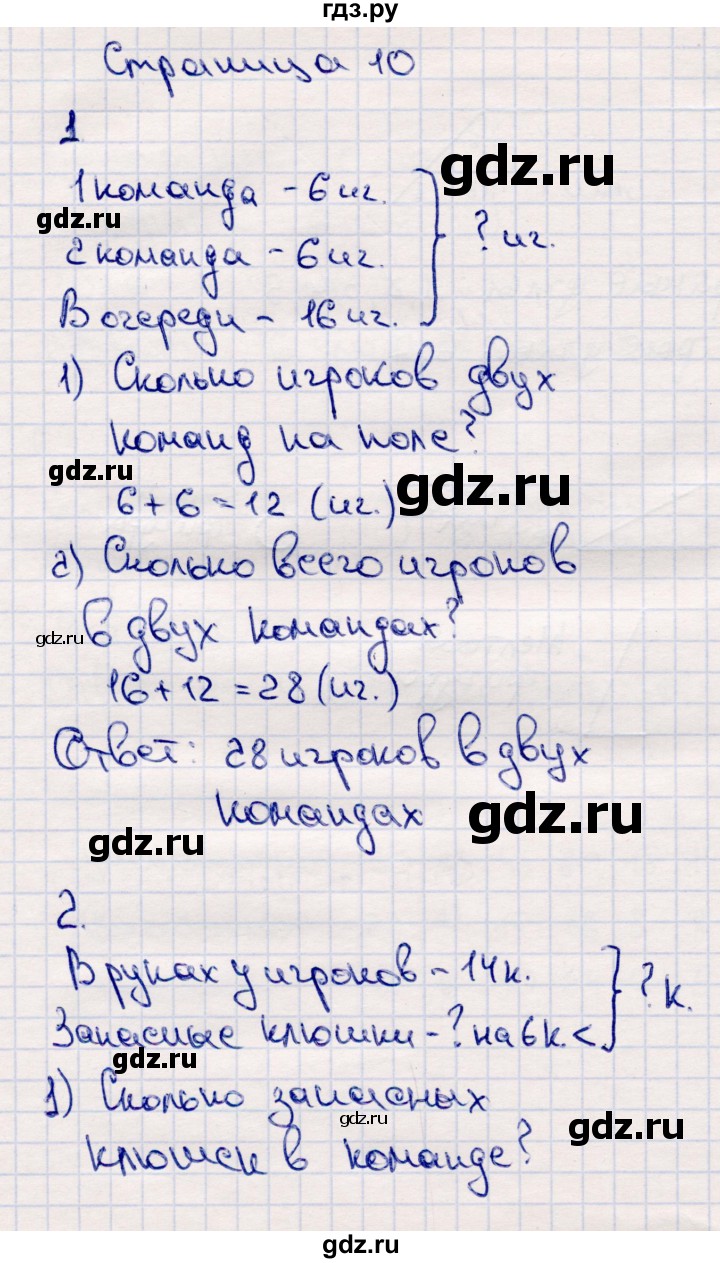 гдз.ру
Страница 10
1
1 команда - 6 иг.
gdz.ru
gdz.ru
2 команда - 6 иг.
? иг.
В очереди - 16 иг.
1) Сколько игроков двух
команд на поле?
gdz.ru
gdz.ru
6 + 6 = 12 (иг.)
2) Сколько всего игроков
gdz.ru
в двух командах?
16 + 12 = 28 (иг.)
Ответ: 28 игроков в двух
командах
gdz.ru
gdz.ru
2.
В руках у игроков - 14 к.
? к.
Запасные клюшки - ? на 6 к. <
gdz.ru
1) Сколько запасных
gdz.ru
gdz.ru
клюшек в команде?
gdz.ru